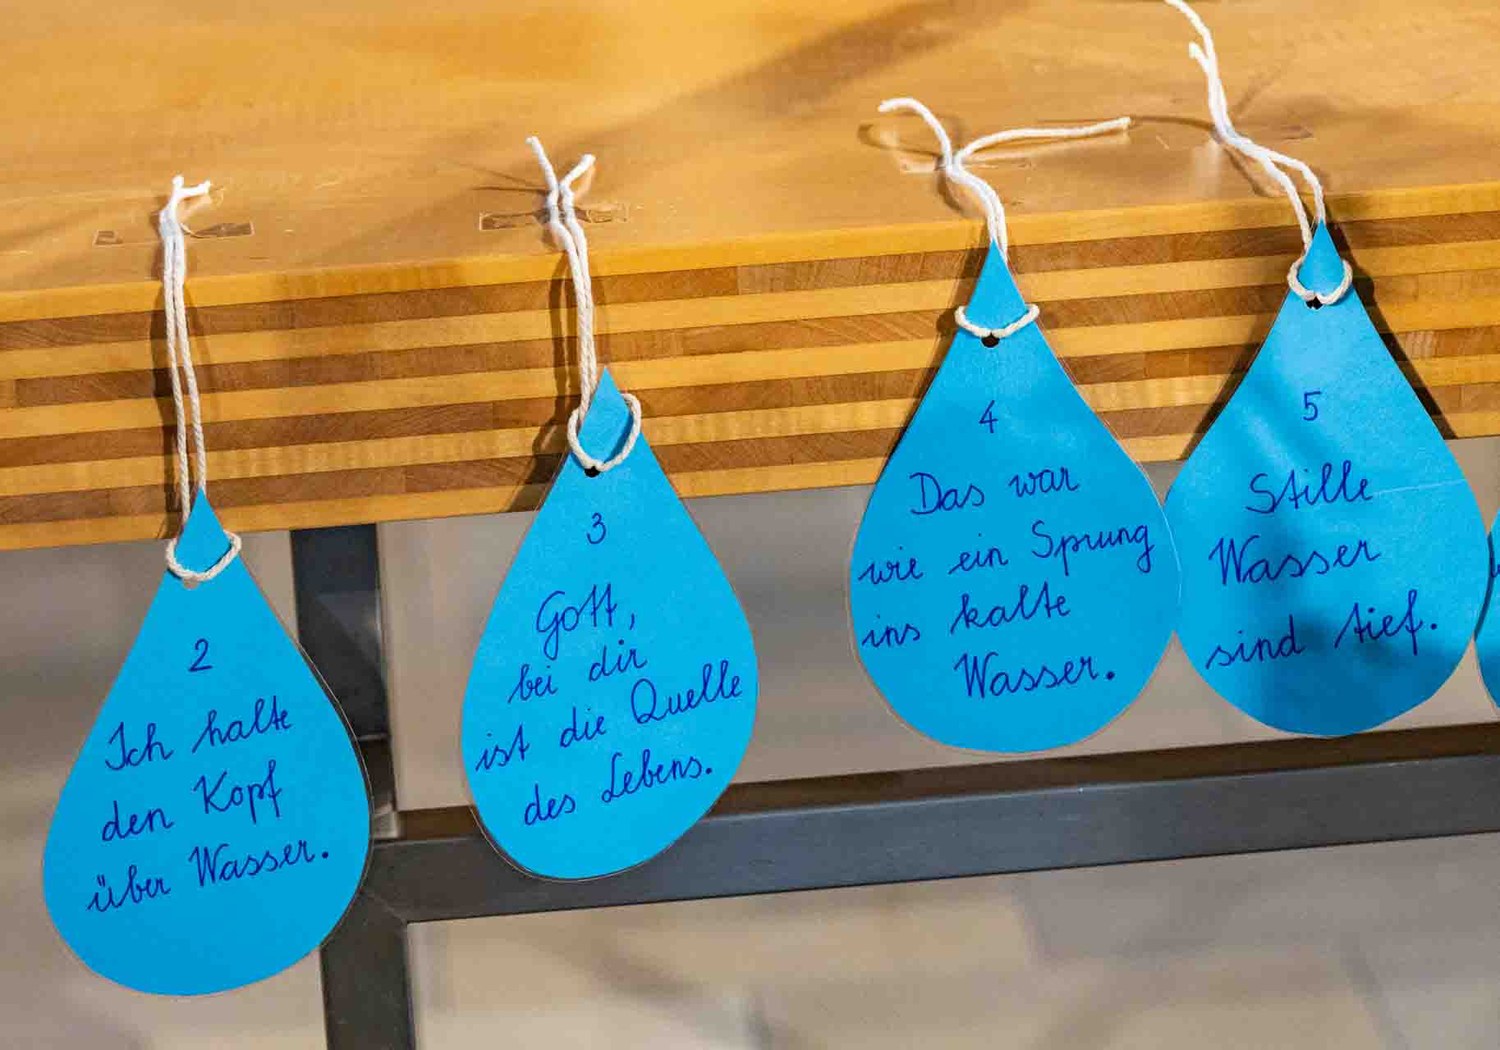 2
Ich halte
den Kopf
über Wasser.
3
Gott,
bei dir
ist die Quelle
des Lebens.
4
Das war
wie ein Sprung
ins kalte
Wasser.
5
Stille
Wasser
sind tief.